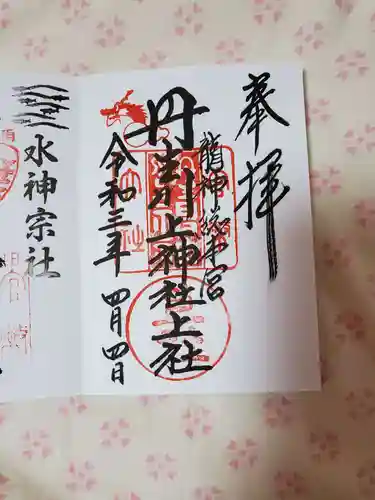 奉拝
龍神総本宮
丹生川上神社上社
令和三年 四月四日
水神宗社